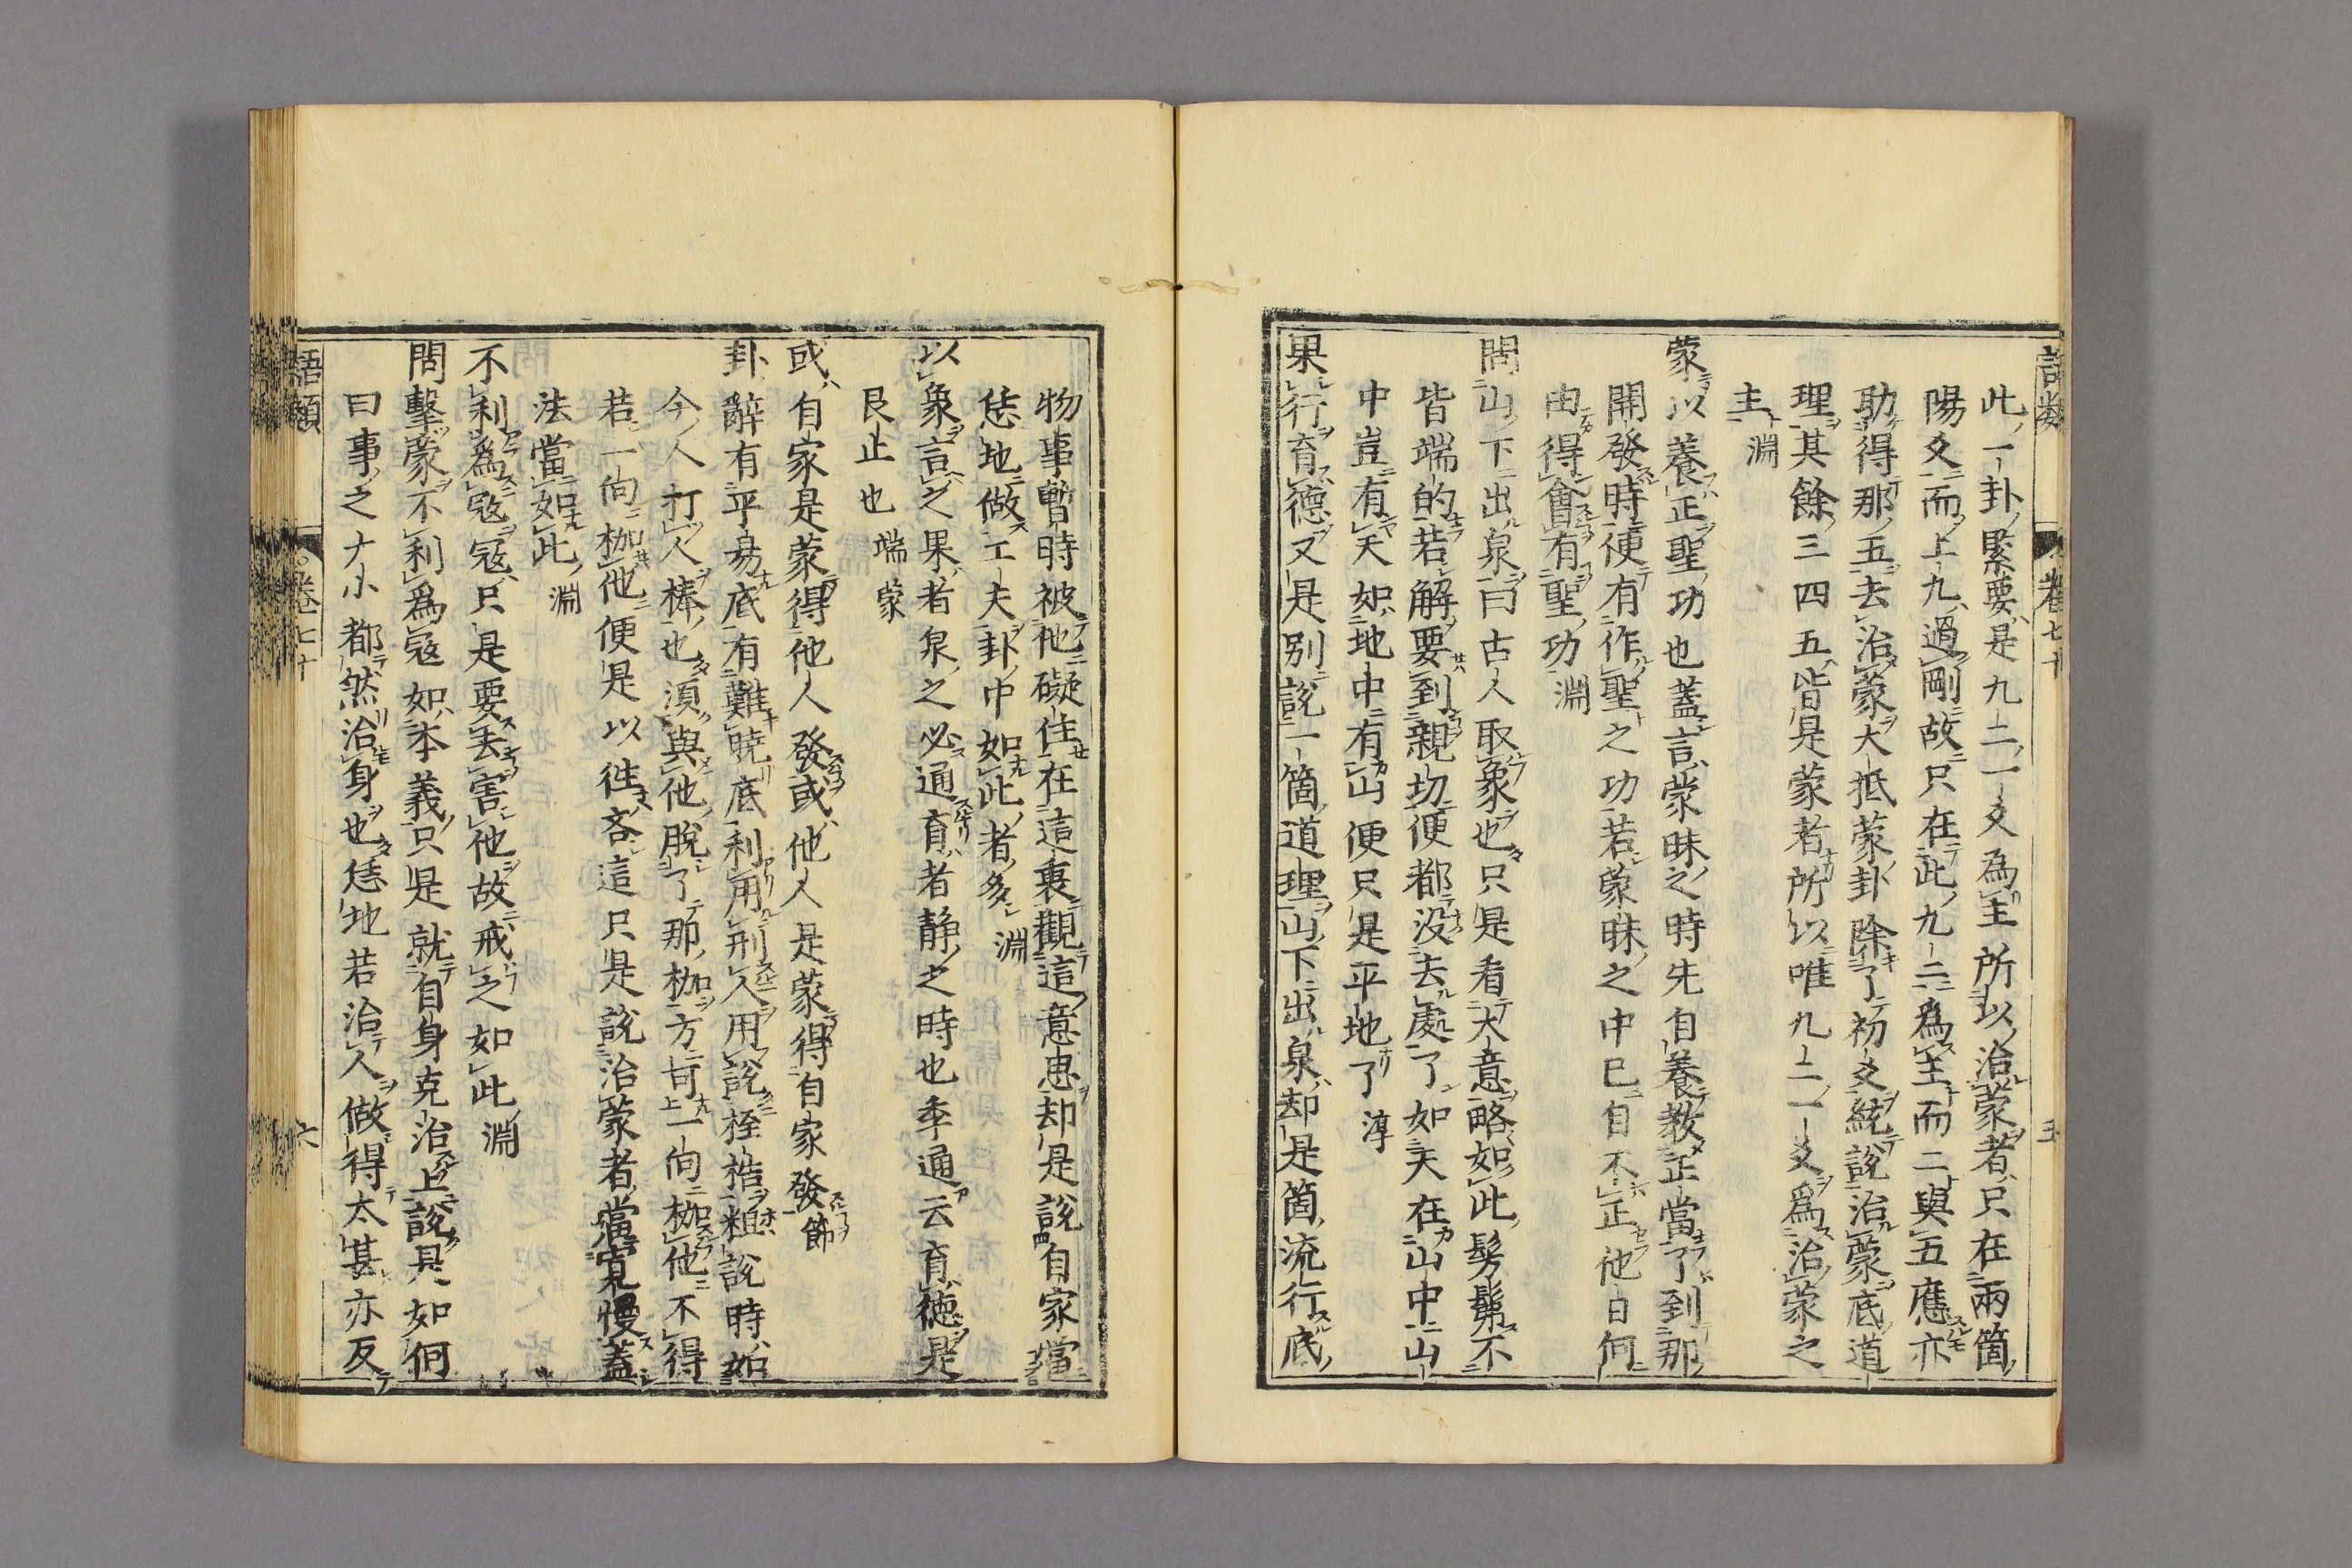 語類
卷七十
五
此一卦緊要是九二一爻為主所以治蒙者只在兩箇
陽爻而上九過剛故只在此九二為主而二與五應亦
助得那五去治蒙大抵蒙卦除了初爻統說治蒙底道
理其餘三四五皆是蒙者所以唯九二一爻爲治蒙之
主 淵
蒙以養正聖功也蓋言蒙昧之時先自養教正當了到那
開發時便有作聖之功若蒙昧之中已自不正他日何
由得會有聖功 淵
問山下出泉曰古人取象也只是看大意略如此髣髴不
皆端的若解要到親切便都没去處了如天在山中山
中豈有天如地中有山便只是平地了 淳
果行育德又是別說一箇道理山下出泉却是箇流行底
物事暫時被他礙住在這裏觀這意思却是說自家當
恁地做工夫卦中如此者多 淵
以象言之果者泉之必通育者静之時也季通云育德是
艮止也 端蒙
或自家是蒙得他人發或他人是蒙得自家發 節
卦辭有平易底有難曉底利用刑人用說桎梏粗說時如
今人打人棒也須與他脫了那枷方可一向枷他不得
若一向枷他便是以往吝這只是說治蒙者當寬慢蓋
法當如此 淵
不利為寇寇只是要去害他故戒之如此 淵
問擊蒙不利為寇如本義只是就自身克治上說是如何
曰事之大小都然治身也恁地若治人做得太甚亦反
語類
卷七十
六